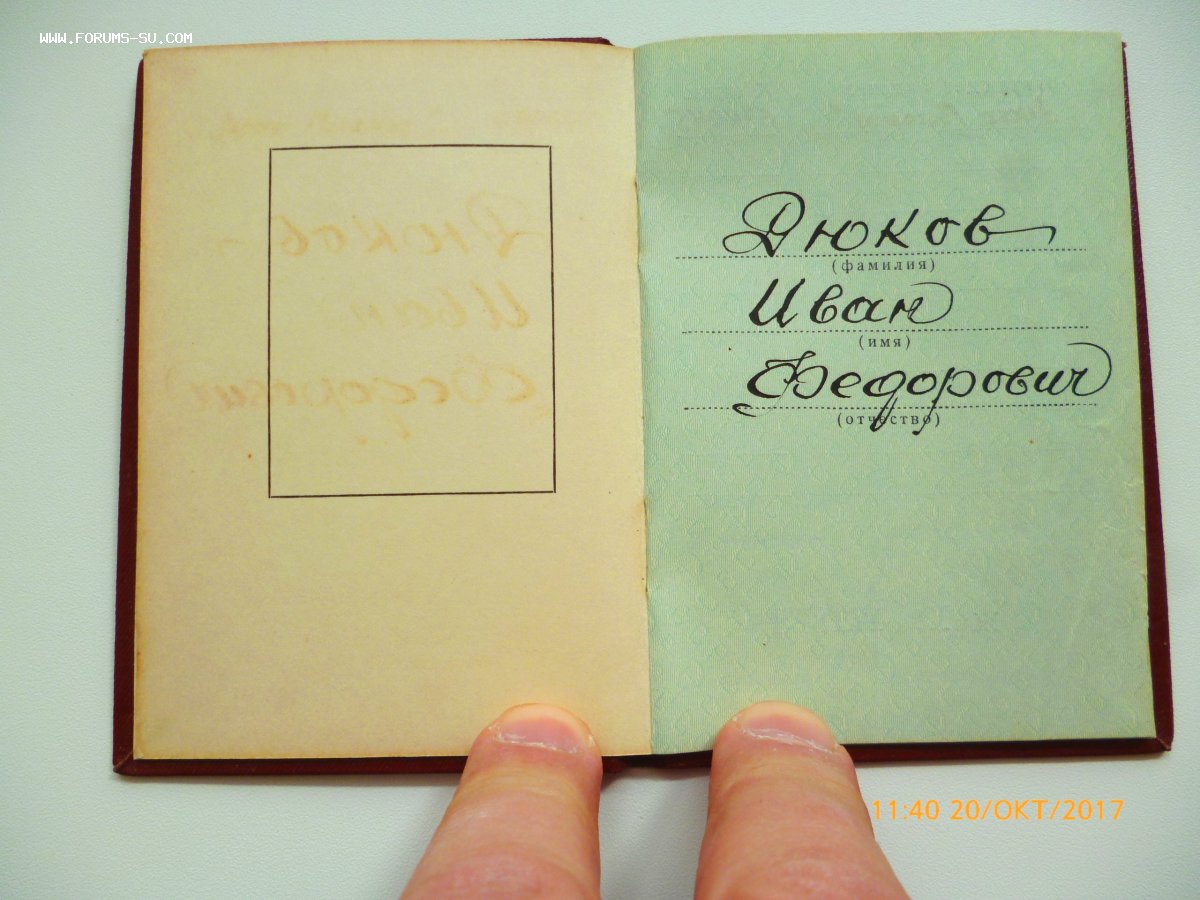 WWW.FORUMS-SU.COM
Дюков
(фамилия)
Иван
(имя)
Федорович
(отчество)
11:40 20/ОКТ/2017